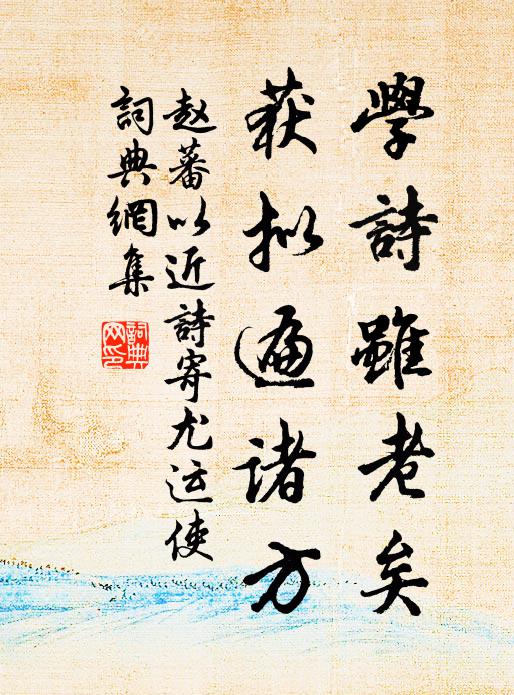 學詩雖老矣
获拟遍诸方
赵蕃以近詩寄尤运使
詞典網集
詞典網印